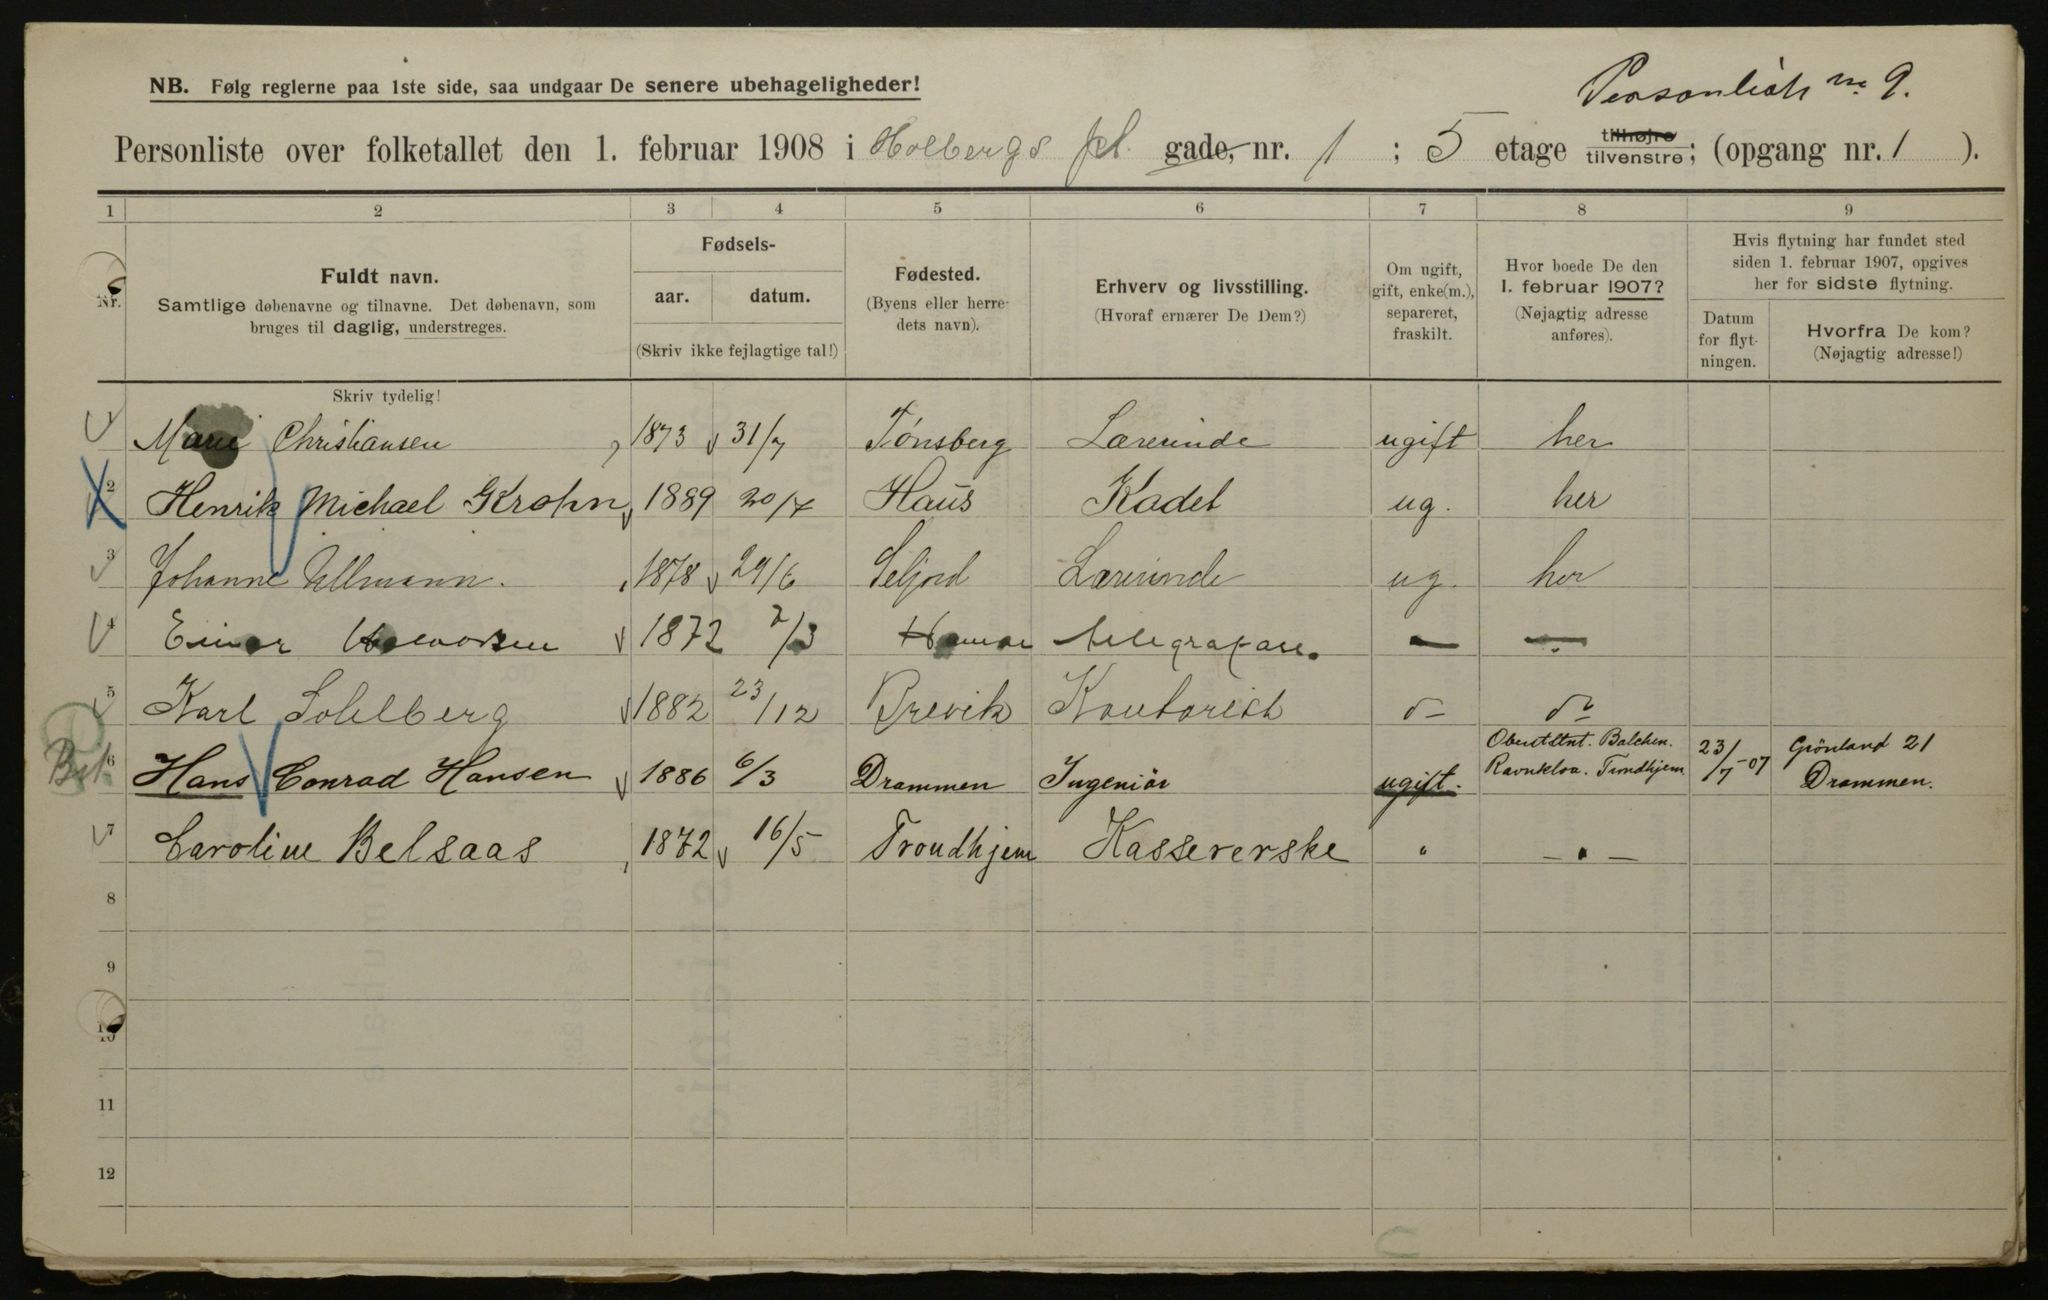 Personliste nr. 9.
NB. Følg reglerne paa 1ste side, saa undgaar De senere ubehageligheder!
Personliste over folketallet den 1. februar 1908 i Holbergs pl. gade, nr. 1 ; 5 etage tilhøjre tilvenstre; (opgang nr. 1 ).
1 2 3 4 5 6 7 8 9
Nr.
Fuldt navn.
Samtlige døbenavne og tilnavne. Det døbenavn, som
bruges til daglig, understreges.
Fødsels-
aar. datum.
(Skriv ikke fejlagtige tal!)
Fødested.
(Byens eller herre-
dets navn).
Erhverv og livsstilling.
(Hvoraf ernærer De Dem?)
Om ugift,
gift, enke(m.),
separeret,
fraskilt.
Hvor boede De den
1. februar 1907?
(Nøjagtig adresse
anføres).
Hvis flytning har fundet sted
siden 1. februar 1907, opgives
her for sidste flytning.
Datum
for flyt-
ningen.
Hvorfra De kom?
(Nøjagtig adresse!)
Skriv tydelig!
Marie Christiansen 1873 31/7 Tønsberg Lærerinde ugift her
2 Henrik Michael Krohn 1889 20/7 Haus Kadet ug. her
3 Johanne Ullmann. 1878 29/6 Seljord Lærerinde ug. her
4 Einar 1872 2/3 Hamar — —
5 Karl Sohlberg 1882 23/12 Brevik Kontorist
6 Hans Conrad Hansen 1886 6/3 Drammen Ingeniör ugift. Oberstltnt. Balchen. Ravnkloa. Trondhjem 23/7-07 Grönland 21 Drammen.
7 Caroline Belsaas 1872 16/5 Trondhjem Kassererske " — " —
8
9
10
11
12